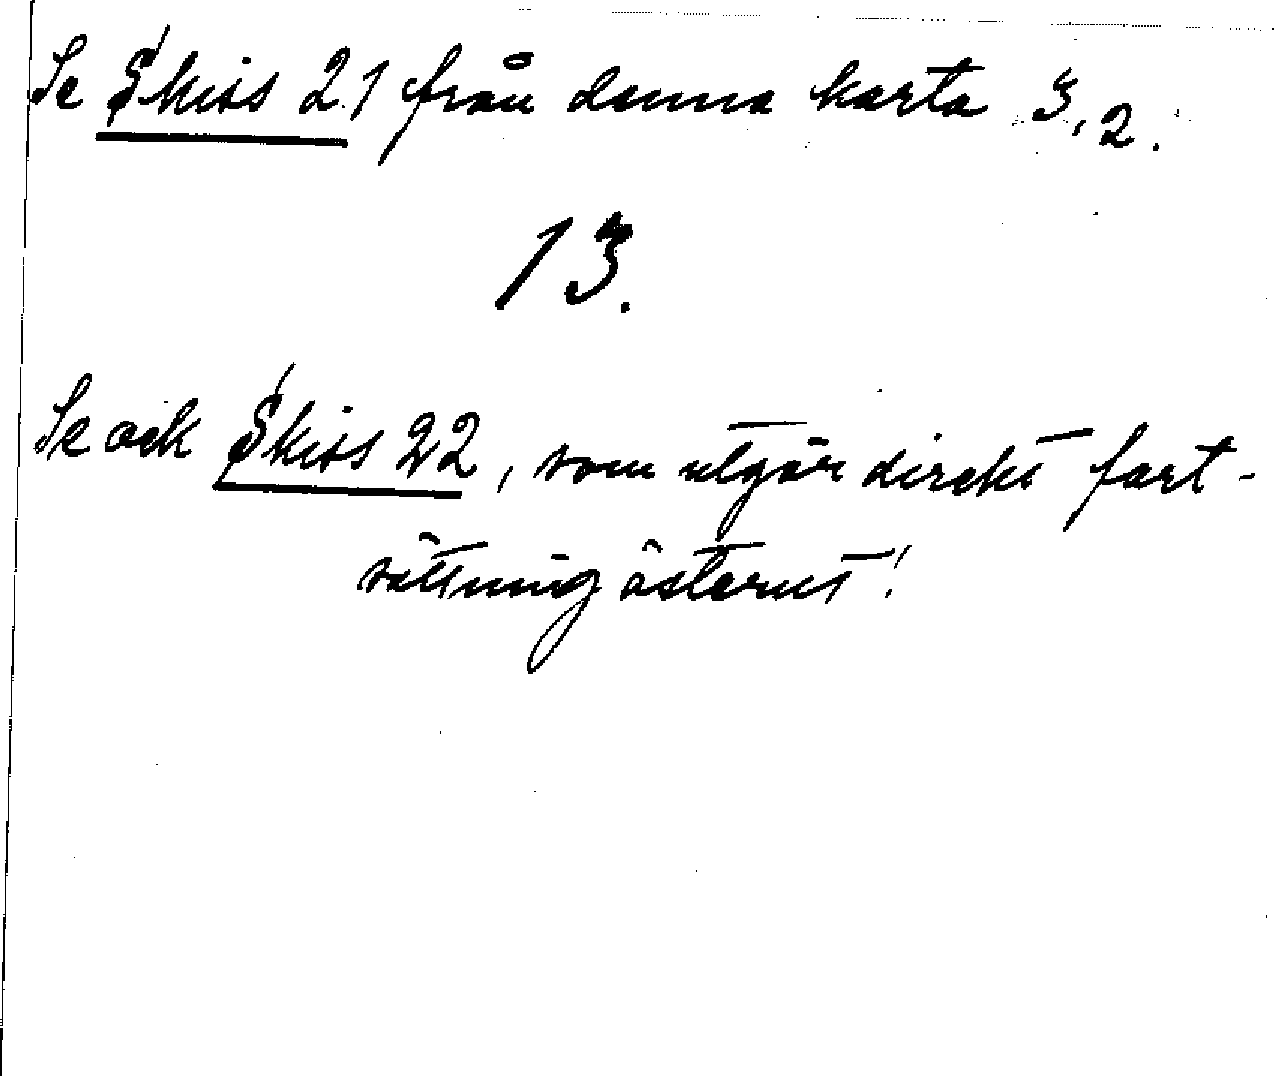 Se Skiss 21 från denna karta 3,2.
13.
Se ock Skiss 22, som utgör direkt fort-
sättning österut!